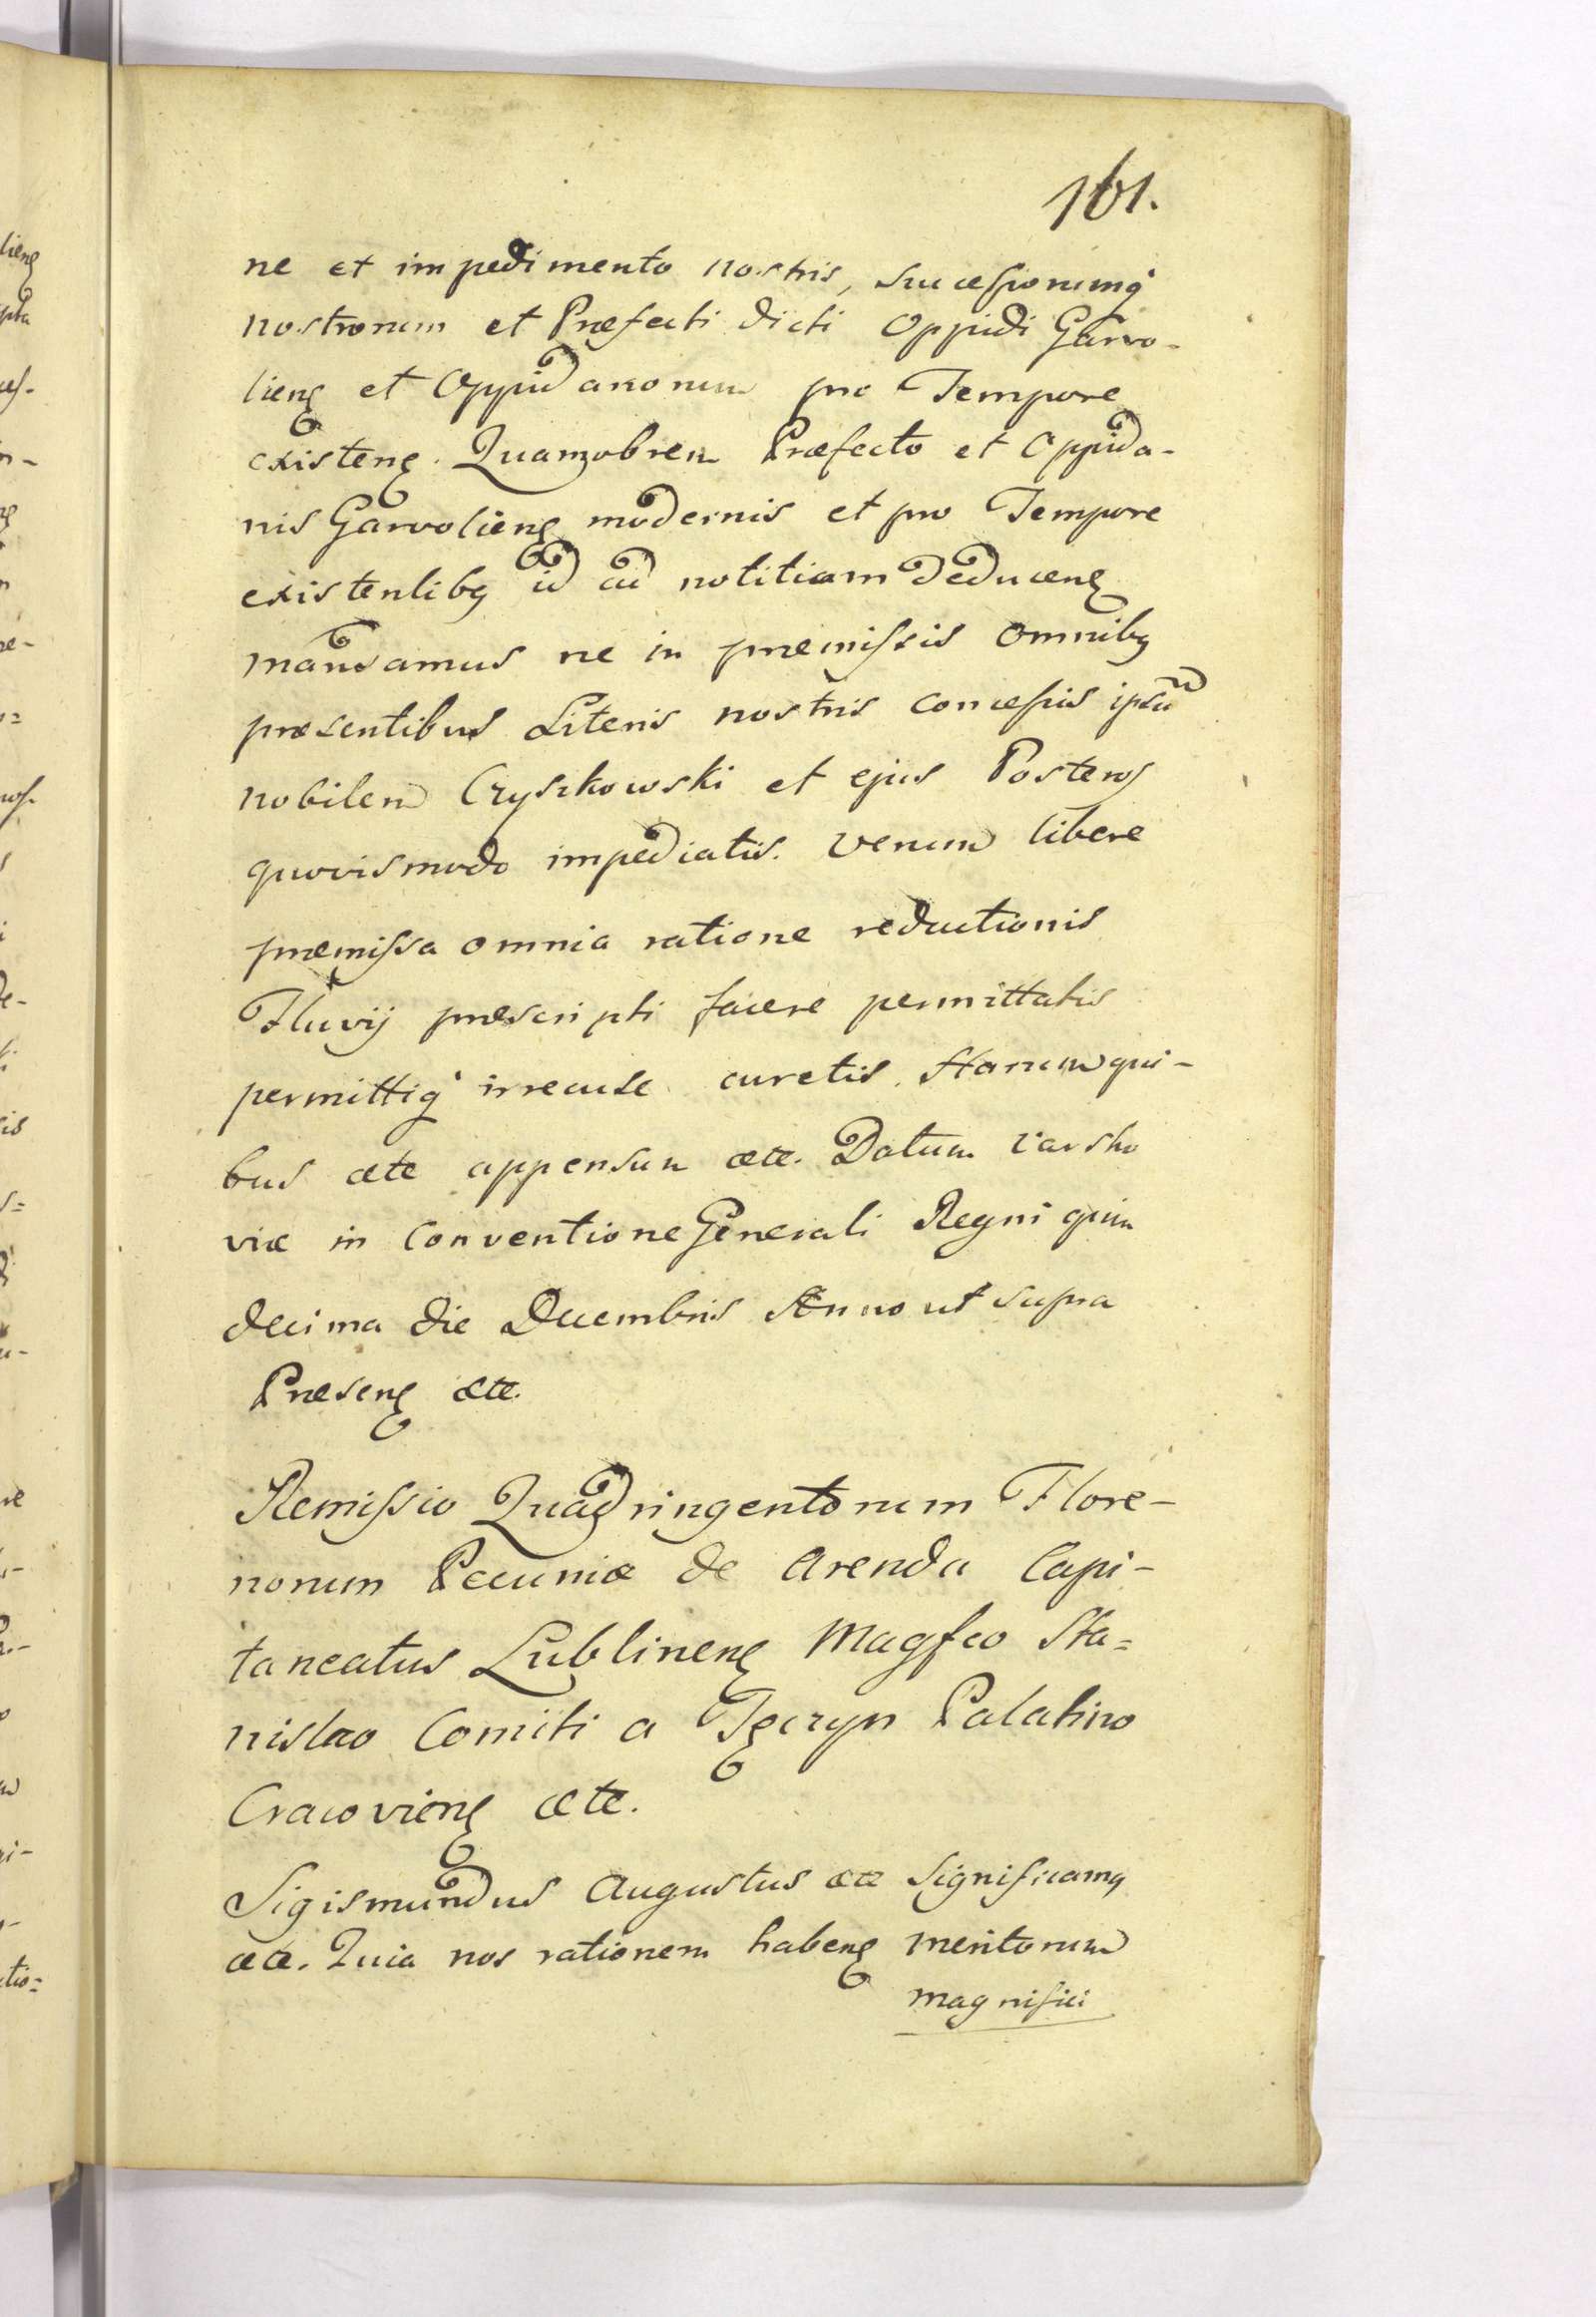 161.
ne et impedimento nostris, succeſsorumq̃
nostrorum et Præfecti dicti Oppidi Garvo-
lienȩ et Oppidanorum pro Tempore
existenȩ. Quamobrem Præfecto et Oppida-
nis Garvolienȩ modernis et pro Tempore
existentibꝫ id ad notitiam deducenȩ
mandamus ne in præmiſsis omnibꝫ
præsentibus Literis nostris conceſsis ipsū
nobilem Czyszkowski et ejus Posteros
quovismodo impediatis. Verum libere
præmiſsa omnia ratione reductionis
Fluvij præscripti facere permittatis
permittiq̃ irrecuse curetis. Harum qui-
bus ætc appensum ætc. Datum Varsho
viæ in Conventione Generali Regni quin
decima die Decembris Anno ut supra
Præsenȩ ætc.
Remiſsio Quadringentorum Flore-
norum Pecuniæ de Arenda Capi-
taneatus Lublinenȩ Magfco Sta=
nislao Comiti a Tęczyn Palatino
Cracovienȩ ætc.
Sigismundus Augustus ætc Significamꝫ
ætc. Quia nos rationem habenȩ meritorum
magnifici